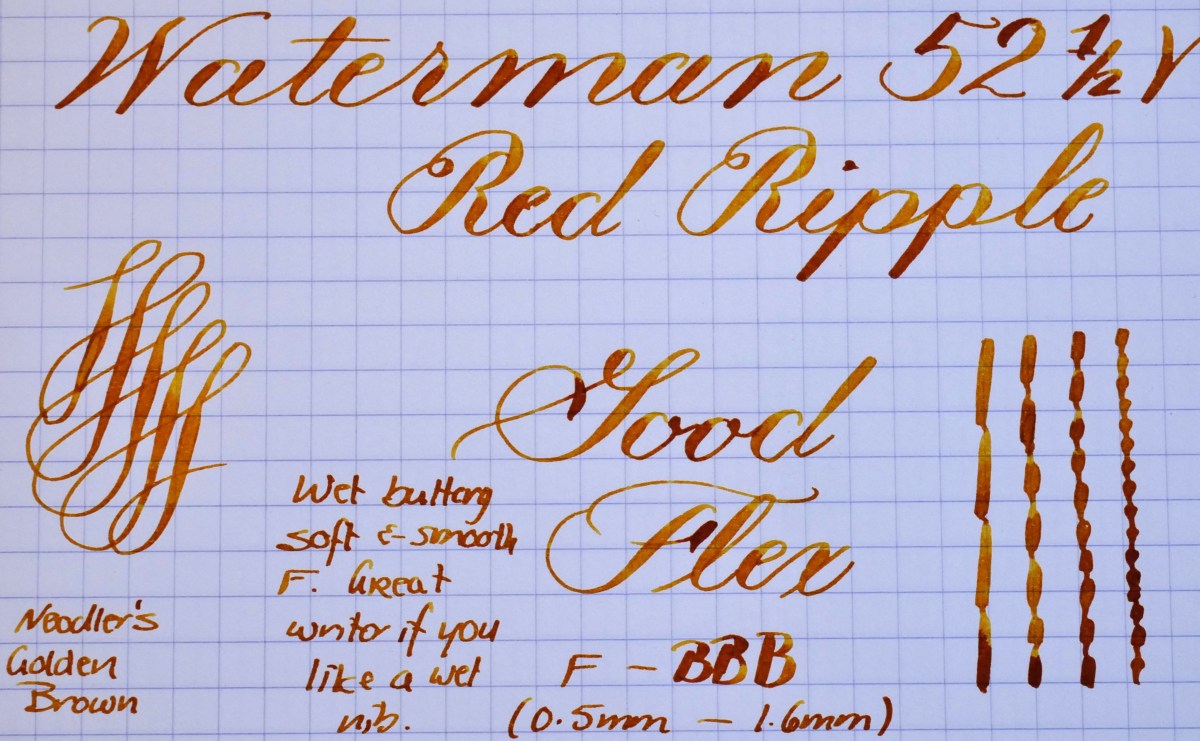 Waterman 52 1/2 V
Red Ripple
Good
Flex
Wet buttery
soft & smooth
F. Great
writer if you
like a wet
nib.
Noodler's
Golden
Brown
F - BBB
(0.5mm - 1.6mm)